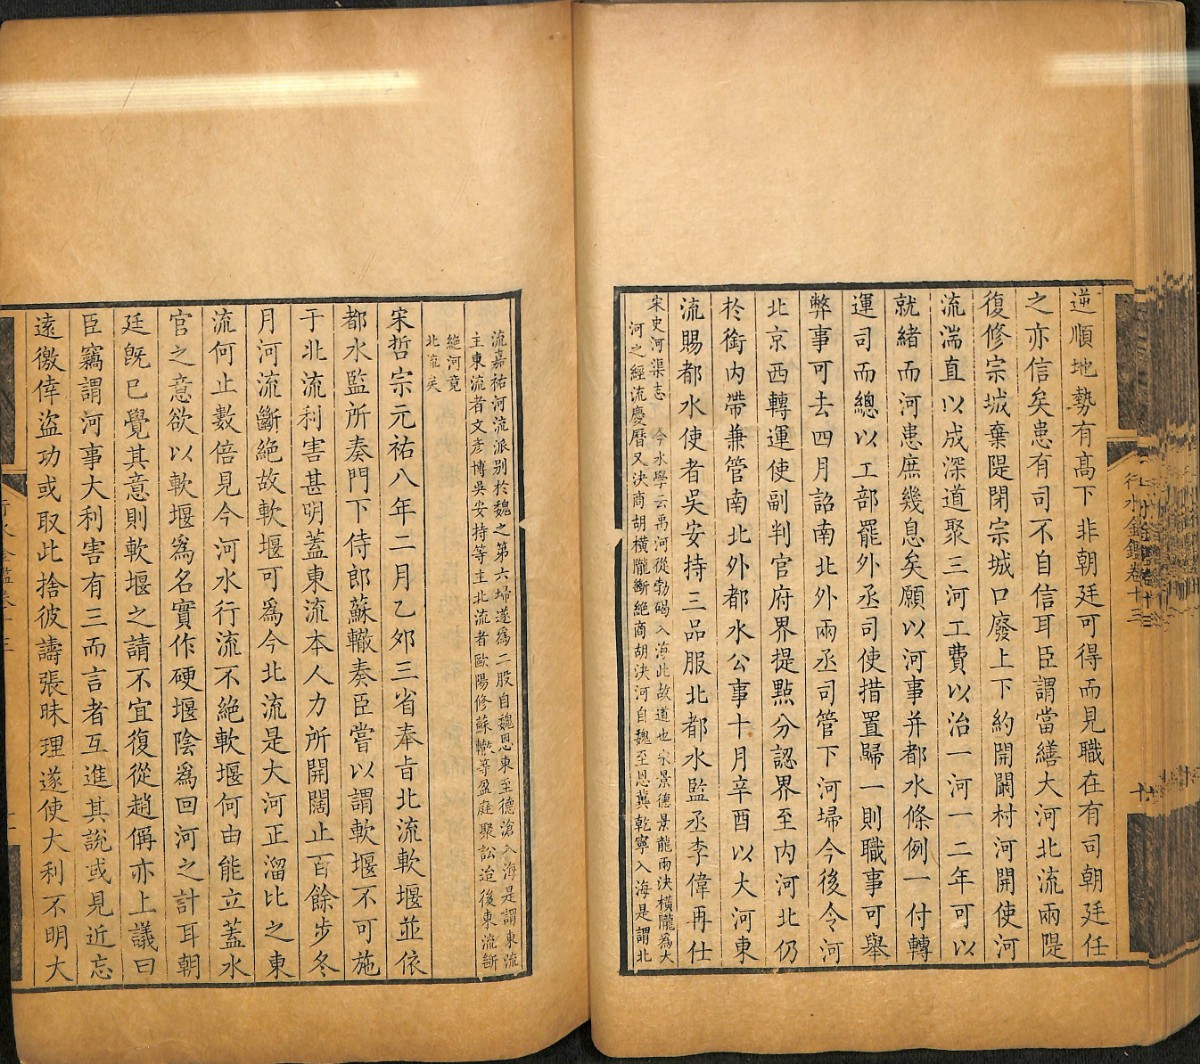 逆順地勢有高下非朝廷可得而見職在有司朝廷任
之亦信矣患有司不自信耳臣謂當繕大河北流兩隄
復修宗城棄隄閉宗城口廢上下約開闞村河開使河
流湍直以成深道聚三河工費以治一河一二年可以
就緒而河患庶幾息矣願以河事并都水條例一付轉
運司而總以工部罷外丞司使措置歸一則職事可舉
弊事可去四月詔南北外兩丞司管下河埽今後令河
北京西轉運使副判官府界提點分認界至内河北仍
於銜内帶兼管南北外都水公事十月辛酉以大河東
流賜都水使者吳安持三品服北都水監丞李偉再仕
宋史河渠志 今水學云禹河從勃碣入海此故道也宋景德景龍兩決橫隴為大
河之經流慶曆又決商胡橫隴斷絕商胡決河自魏至恩冀乾寧入海是謂北
流嘉祐河流派别於魏之第六埽遂爲二股自魏恩東至德滄入海是謂東流
主東流者文彦博吳安持等主北流者歐陽修蘇轍等盈庭聚訟迨後東流斷
絶河竟
北流矣
宋哲宗元祐八年二月乙卯三省奉旨北流軟堰並依
都水監所奏門下侍郎蘇轍奏臣嘗以謂軟堰不可施
于北流利害甚明蓋東流本人力所開闊止百餘步冬
月河流斷絶故軟堰可爲今北流是大河正溜比之東
流何止數倍見今河水行流不絶軟堰何由能立蓋水
官之意欲以軟堰爲名實作硬堰陰爲回河之計耳朝
廷既已覺其意則軟堰之請不宜復從趙偁亦上議曰
臣竊謂河事大利害有三而言者互進其說或見近忘
遠徼倖盜功或取此捨彼譸張昧理遂使大利不明大
行水金鑑卷十三